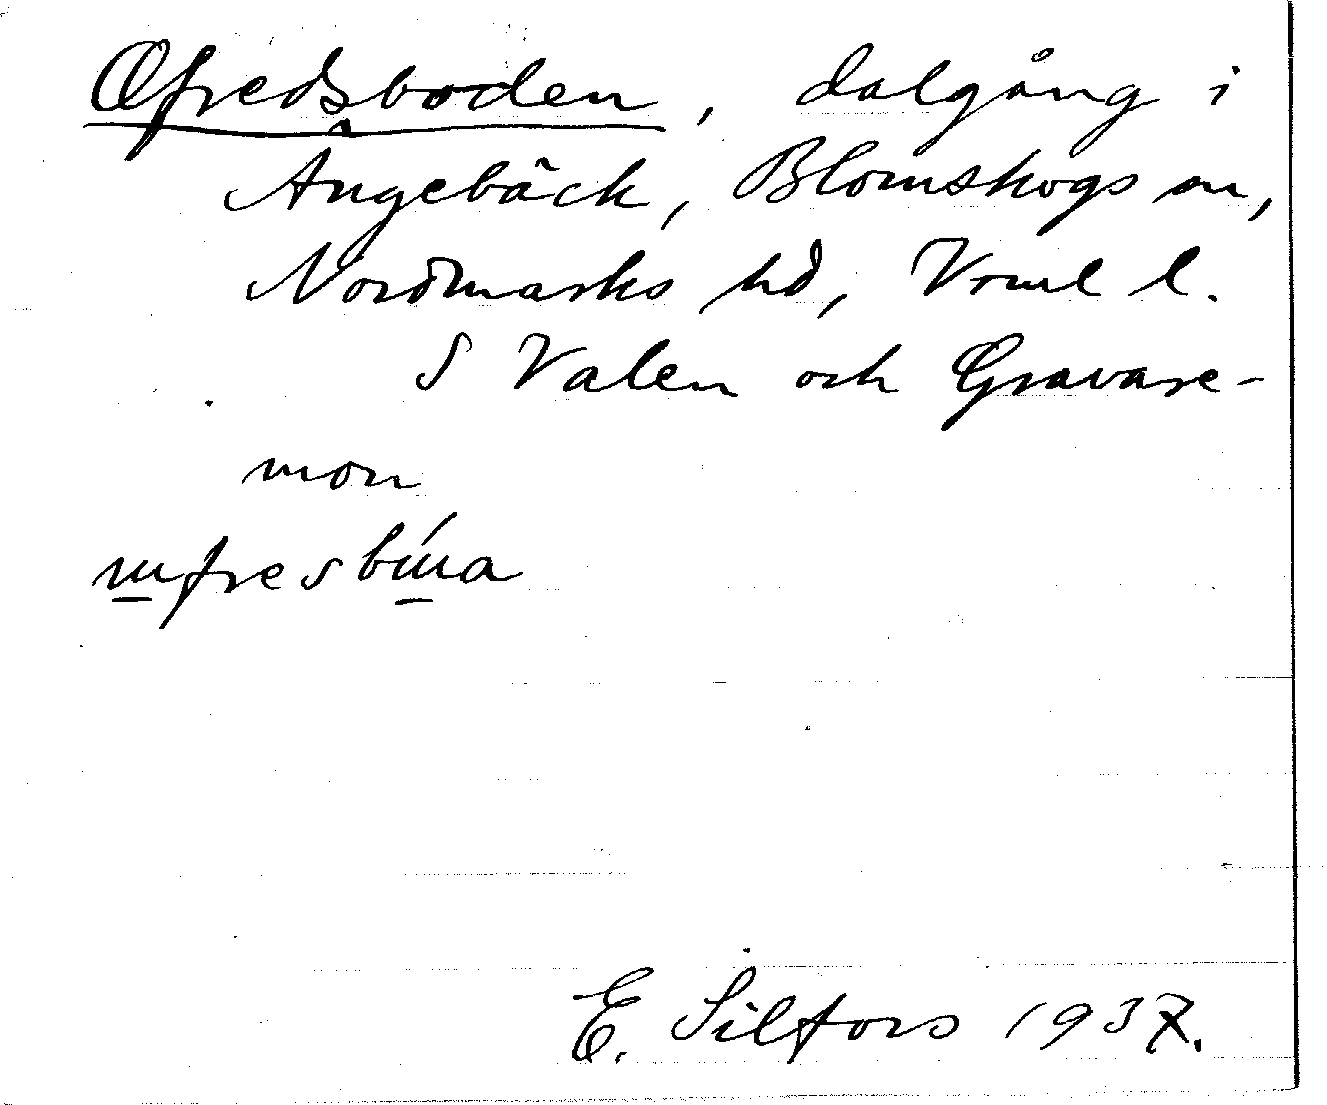 Ofredsboden, dalgång i
Ängebäck, Blomskogs sn,
Nordmarks hd, Vrml l.
S Valen och Gravare-
mon
E. Silfors 1937.